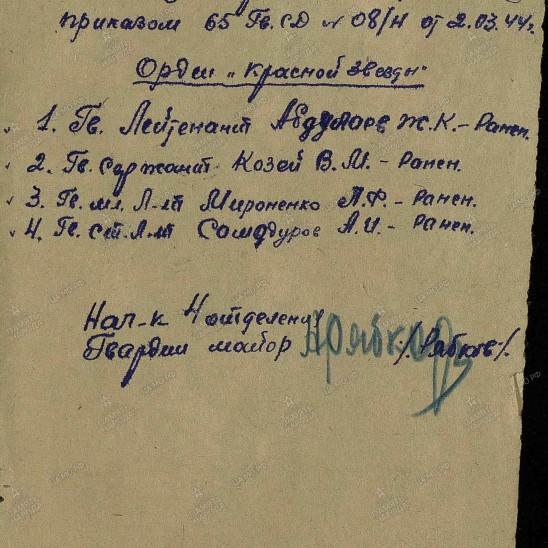 приказом 65 Гв. СД № 08/Н от 2.03.44г.
Орден „Красной Звезды"
1. Гв. Лейтенант Абдулаев Ж.К. - Ранен.
2. Гв. сержант Козей В.М. - Ранен.
3. Гв. мл. Л-нт Мироненко А.Ф. - Ранен.
4. Гв. ст. Л-нт Самодуров А.И. - Ранен.
Нач-к 4 отделения
Гвардии майор /Рябков/.